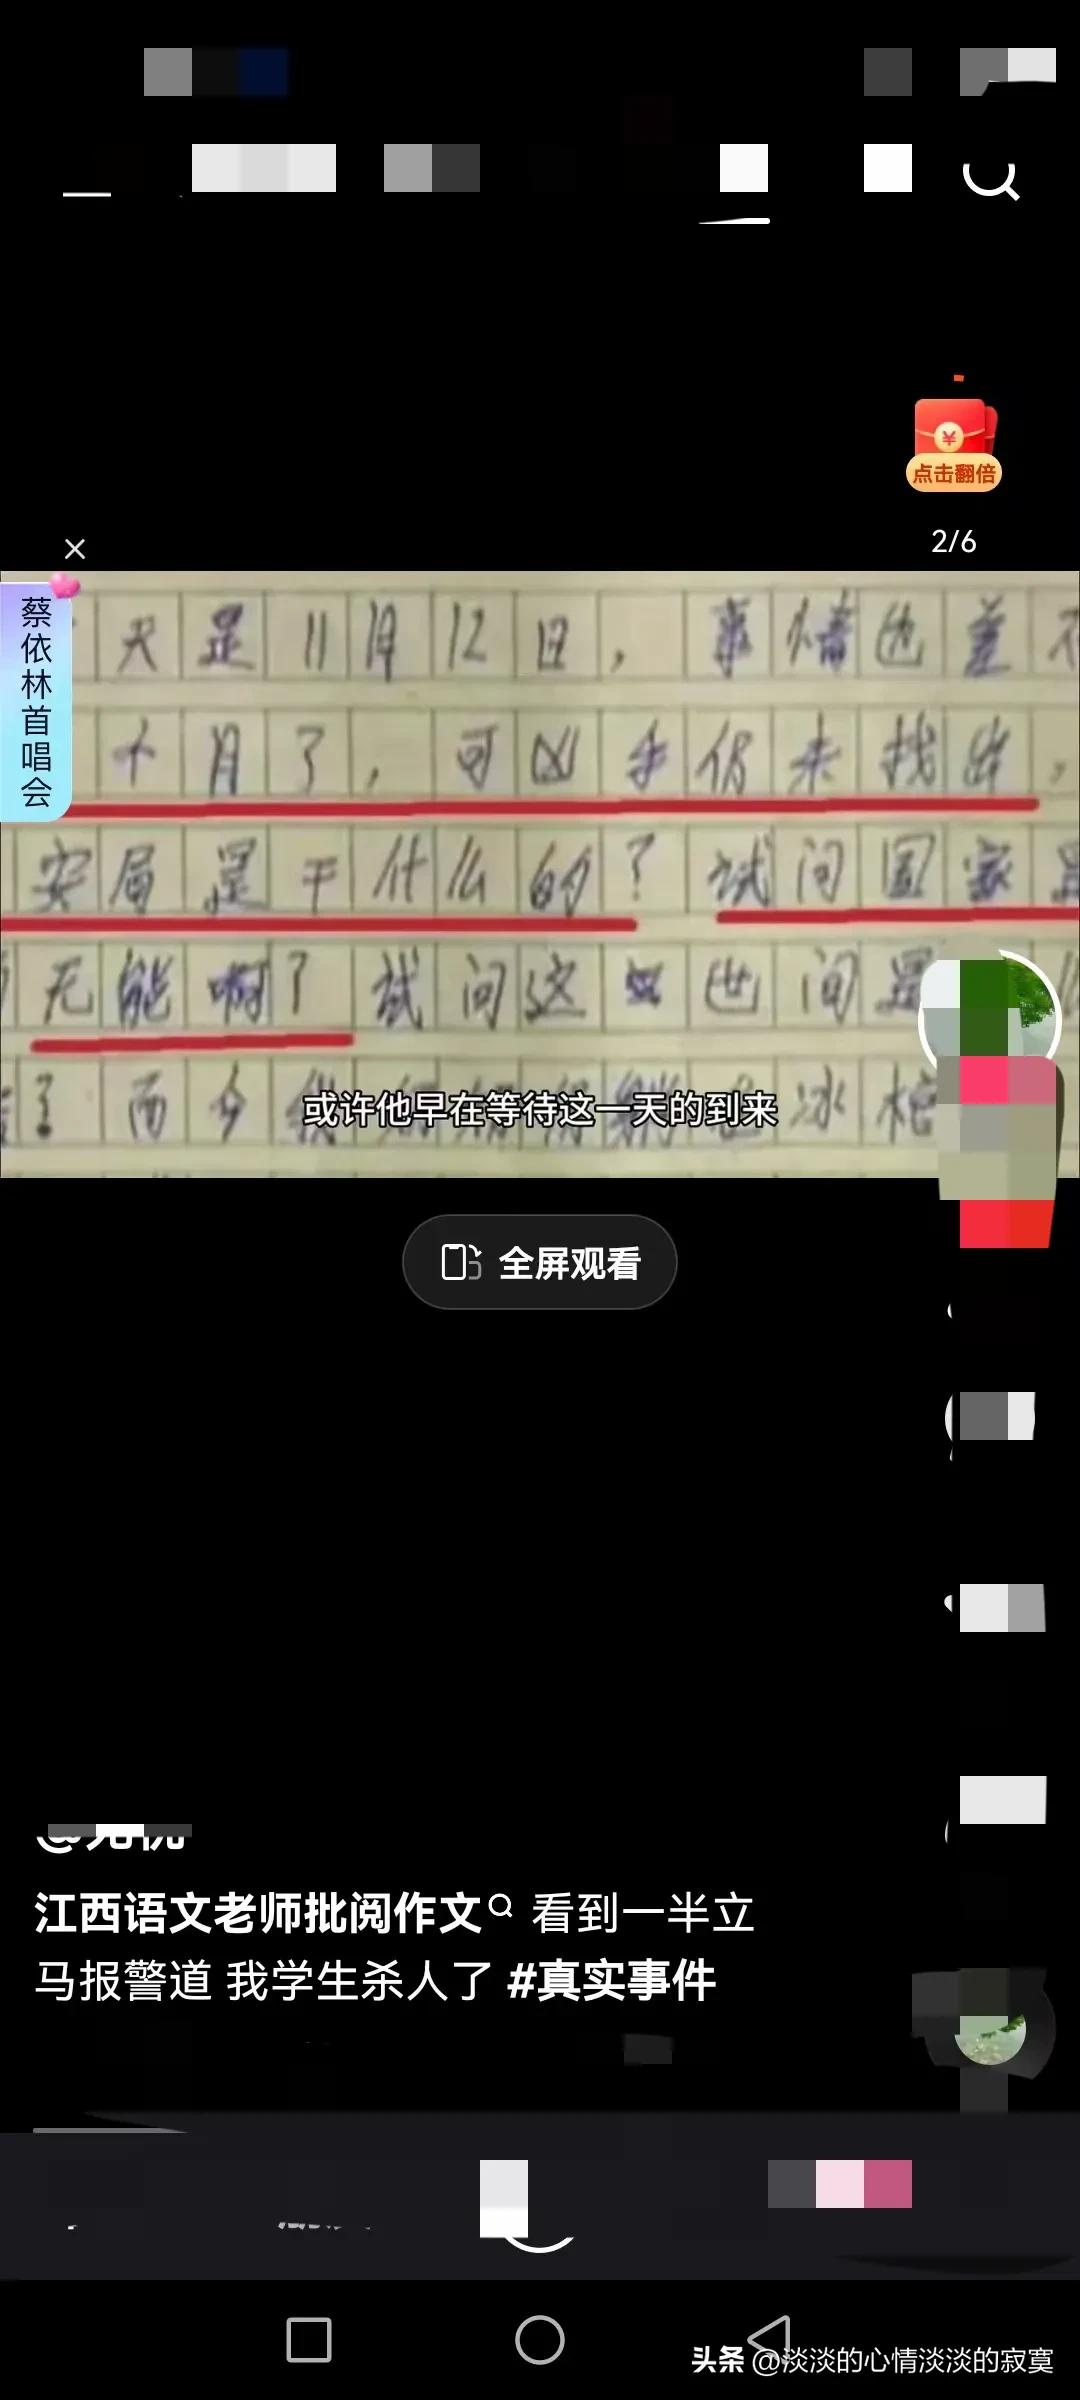 点击翻倍
2/6
蔡依林首唱会
天是11月12日，事情也差不
十月了，可凶手仍未找出，
安局是干什么的？试问国家是
无能啊？试问这世间是
？而今我
冰柜
或许他早在等待这一天的到来
全屏观看
江西语文老师批阅作文 看到一半立
马报警道 我学生杀人了 #真实事件
头条 @淡淡的心情淡淡的寂寞